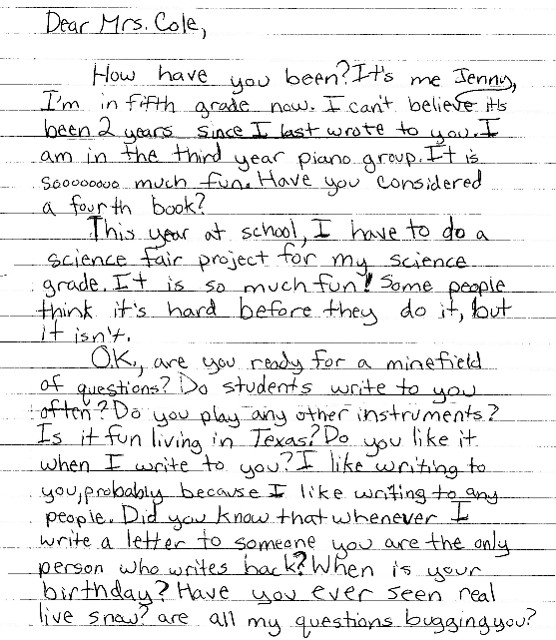 Dear Mrs. Cole,
How have you been? It's me Jenny,
I'm in fifth grade now. I can't believe it's
been 2 years since I last wrote to you. I
am in the third year piano group. It is
soooooooo much fun. Have you considered
a fourth book?
This year at school, I have to do a
science fair project for my science
grade. It is so much fun! Some people
think it's hard before they do it, but
it isn't.
O.K., are you ready for a minefield
of questions? Do students write to you
often? Do you play any other instruments?
Is it fun living in Texas? Do you like it
when I write to you? I like writing to
you, probably because I like writing to any
people. Did you know that whenever I
write a letter to someone you are the only
person who writes back? When is your
birthday? Have you ever seen real
live snow? are all my questions bugging you?